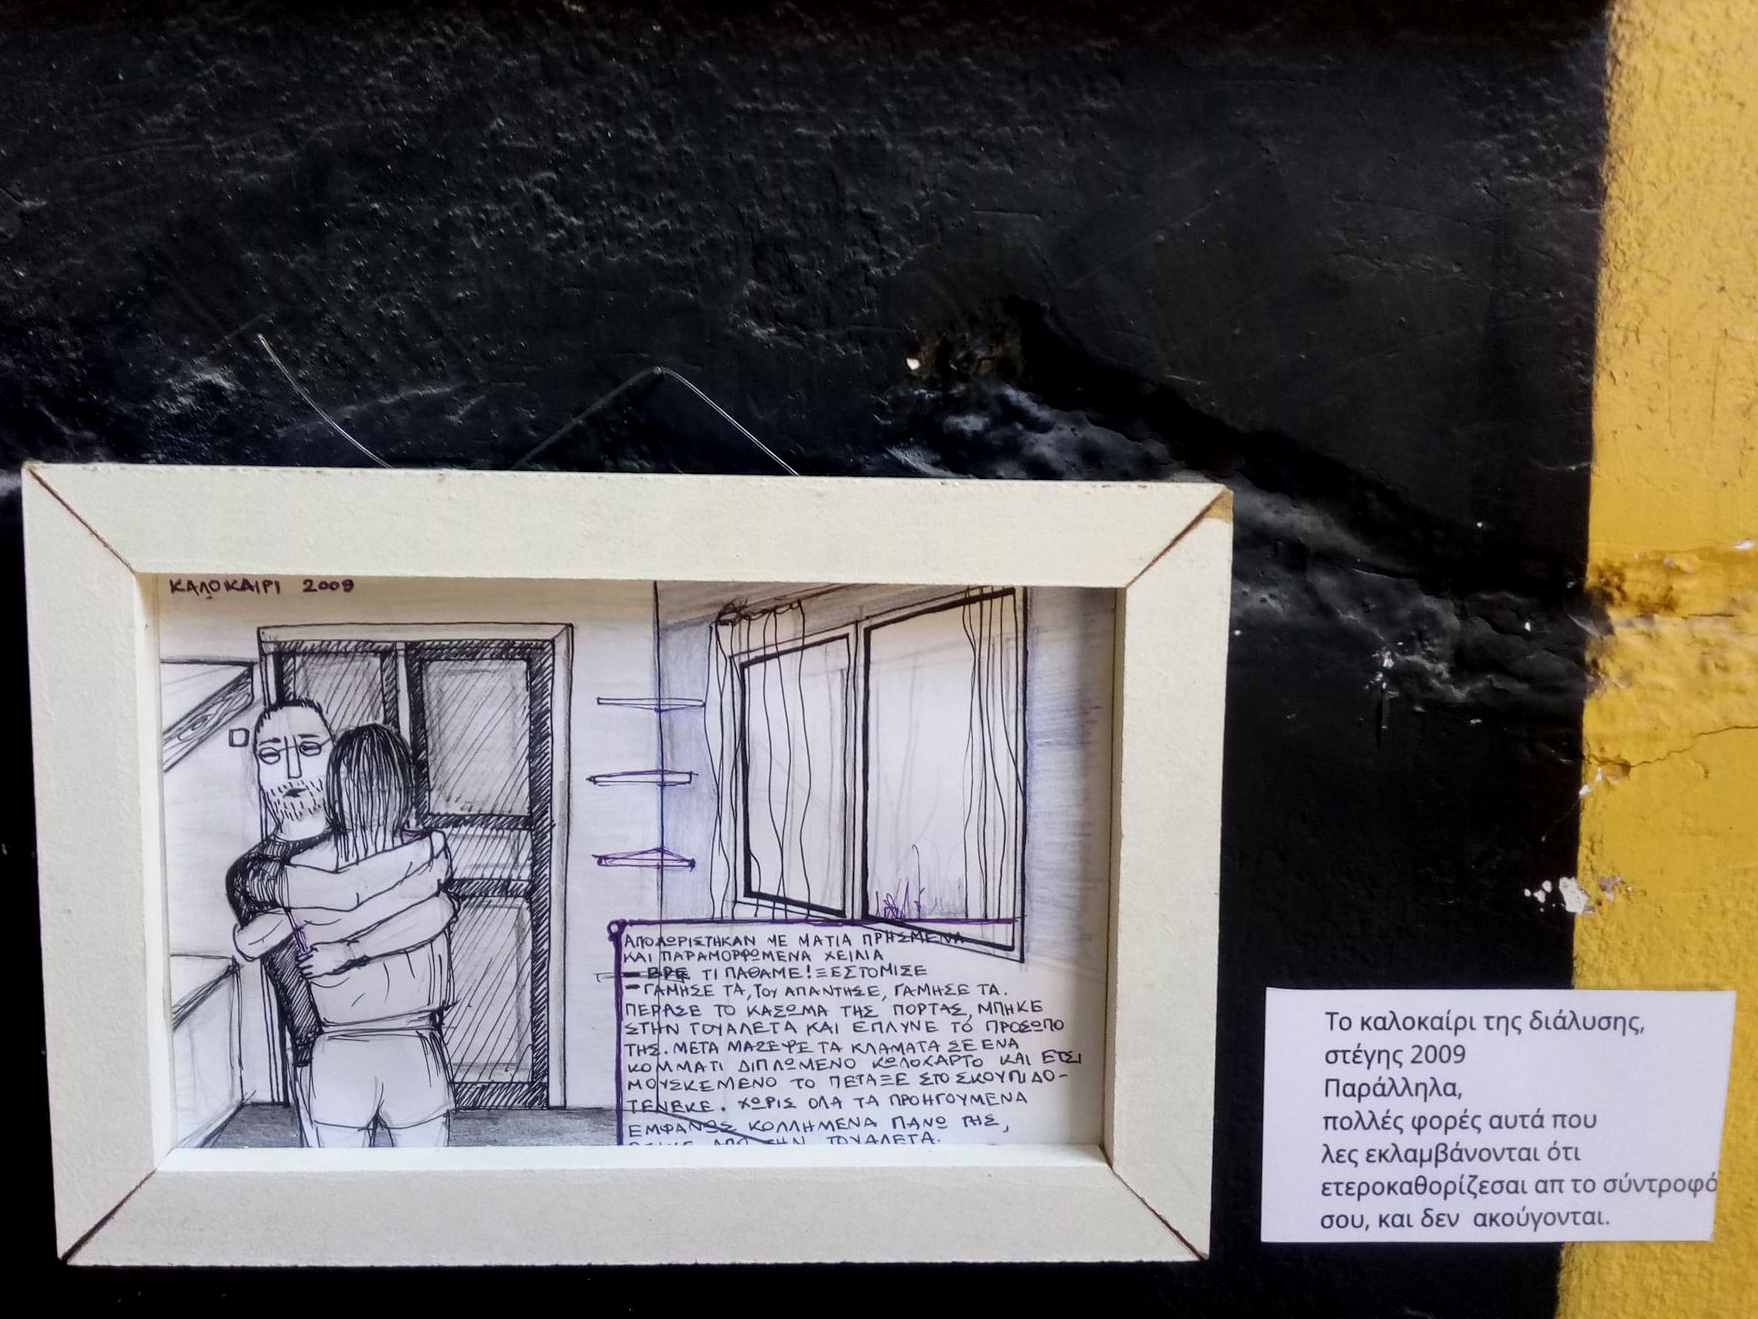 ΚΑΛΟΚΑΙΡΙ 2009
ΑΠΟΧΩΡΙΣΤΗΚΑΝ ΜΕ ΜΑΤΙΑ ΠΡΗΣΜΕΝΑ
ΚΑΙ ΠΑΡΑΜΟΡΦΩΜΕΝΑ ΧΕΙΛΙΑ
— ΒΡΕ ΤΙ ΠΑΘΑΜΕ! ΞΕΣΤΟΜΙΣΕ
— ΓΑΜΗΣΕ ΤΑ, ΤΟΥ ΑΠΑΝΤΗΣΕ, ΓΑΜΗΣΕ ΤΑ.
ΠΕΡΑΣΕ ΤΟ ΚΑΣΩΜΑ ΤΗΣ ΠΟΡΤΑΣ, ΜΠΗΚΕ
ΣΤΗΝ ΤΟΥΑΛΕΤΑ ΚΑΙ ΕΠΛΥΝΕ ΤΟ ΠΡΟΣΩΠΟ
ΤΗΣ. ΜΕΤΑ ΜΑΖΕΨΕ ΤΑ ΚΛΑΜΑΤΑ ΣΕ ΕΝΑ
ΚΟΜΜΑΤΙ ΔΙΠΛΩΜΕΝΟ ΚΩΛΟΧΑΡΤΟ ΚΑΙ ΕΤΣΙ
ΜΟΥΣΚΕΜΕΝΟ ΤΟ ΠΕΤΑΞΕ ΣΤΟ ΣΚΟΥΠΙΔΟ-
ΤΕΝΕΚΕ. ΧΩΡΙΣ ΟΛΑ ΤΑ ΠΡΟΗΓΟΥΜΕΝΑ
ΕΜΦΑΝΩΣ ΚΟΛΛΗΜΕΝΑ ΠΑΝΩ ΤΗΣ,
ΑΠΟ ΤΗΝ ΤΟΥΑΛΕΤΑ.
Το καλοκαίρι της διάλυσης,
στέγης 2009
Παράλληλα,
πολλές φορές αυτά που
λες εκλαμβάνονται ότι
ετεροκαθορίζεσαι απ το σύντροφό
σου, και δεν ακούγονται.